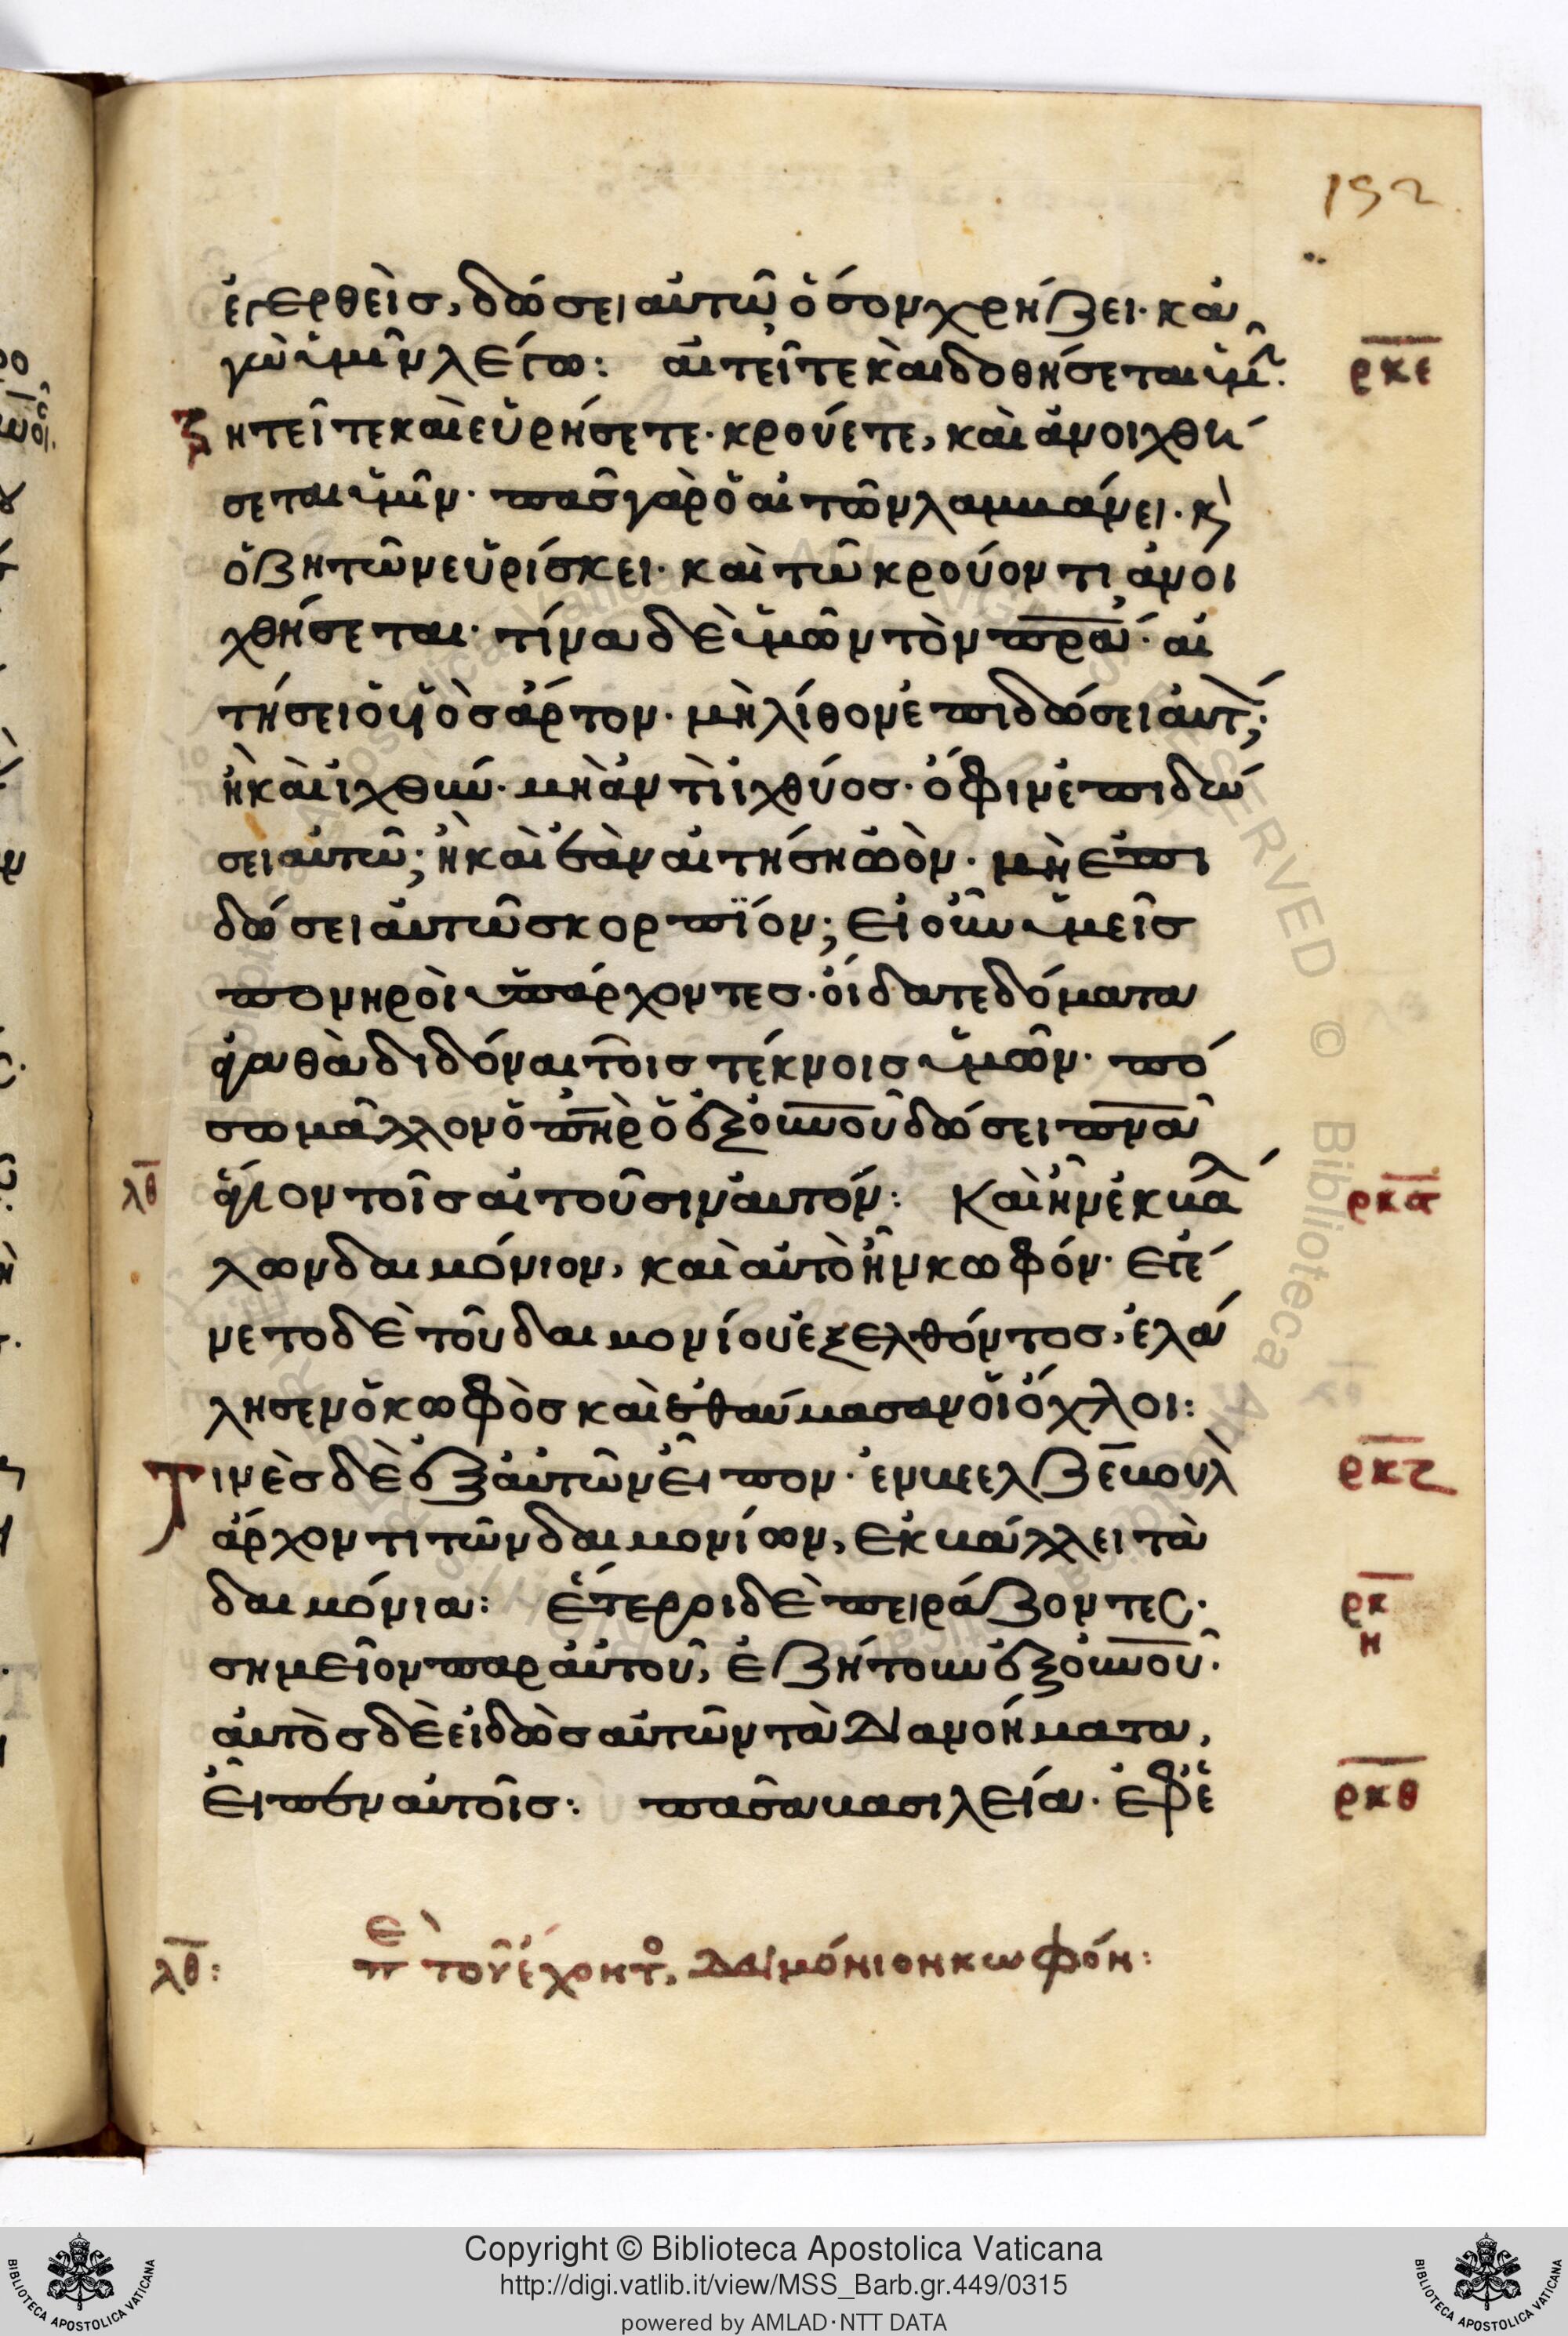 152
ἐγερθεὶσ, δώσει αὐτῶ ὅσον χρήζει· κα
γὼ ὑμῖν λέγω: αἰτεῖτε καὶ δοθήσεται ὑμῖ·
ρκε
ζητεῖτε καὶ εὑρήσετε· κρούετε, καὶ ἀνοιχθή
σεται ὑμῖν· πᾶσ γὰρ ὁ αἰτῶν λαμβάνει· κ
ὁ ζητῶν εὑρίσκει· καὶ τῶ κρούοντι ἀνοι
χθήσεται· τίνα δὲ ὑμῶν τὸν πρα· αἰ
τήσει ὁ υἱὸσ ἄρτον· μὴ λίθον ἐπιδώσει αὐτ;
ἢ καὶ ἰχθύν· μὴ ἀντὶ ἰχθύοσ· ὄφιν ἐπιδώ
σει αὐτῶ; ἢ καὶ ἐὰν αἰτήση ὠὸν· μὴ ἐπι
δώσει αὐτῶ σκορπίον; εἰ οὖν ὑμεῖσ
πονηροὶ ὑπάρχοντεσ· οἴδατε δόματα
ἀγαθὰ διδόναι τοῖσ τέκνοισ ὑμῶν· πό
σω μᾶλλον ὁ πηρ ὁ ἐξ οὐνοῦ δώσει πνα
λθ ἅγιον τοῖσ αἰτοῦσιν αὐτόν: Καὶ ἦν ἐκβά
ρκς
λων δαιμόνιον, καὶ αὐτὸ ἦν κωφόν· ἐγέ
νετο δὲ τοῦ δαιμονίου ἐξελθόντοσ, ἐλά
λησεν ὁ κωφὸσ καὶ ἐθαύμασαν οἱ ὄχλοι:
Τινὲσ δὲ ἐξ αὐτῶν εἶπον· ἐν βεελζεβοὺλ
ρκζ
ἄρχοντι τῶν δαιμονίων, ἐκβάλλει τὰ
δαιμόνια: ἕτεροι δὲ πειράζοντες·
ρκη
σημεῖον παρ αὐτοῦ, ἐζήτουν ἐξ οὐνοῦ·
αὐτὸσ δὲ εἰδὼσ αὐτῶν τὰ διανοήματα,
εἶπεν αὐτοῖσ: πᾶσα βασιλεία· ἐφ ἑ
ρκθ
λθ: πε τοῦ ἔχοντο, δαιμόνιον κωφόν:
Copyright © Biblioteca Apostolica Vaticana
http://digi.vatlib.it/view/MSS_Barb.gr.449/0315
powered by AMLAD·NTT DATA
BIBLIOTECA APOSTOLICA VATICANA
BIBLIOTECA APOSTOLICA VATICANA